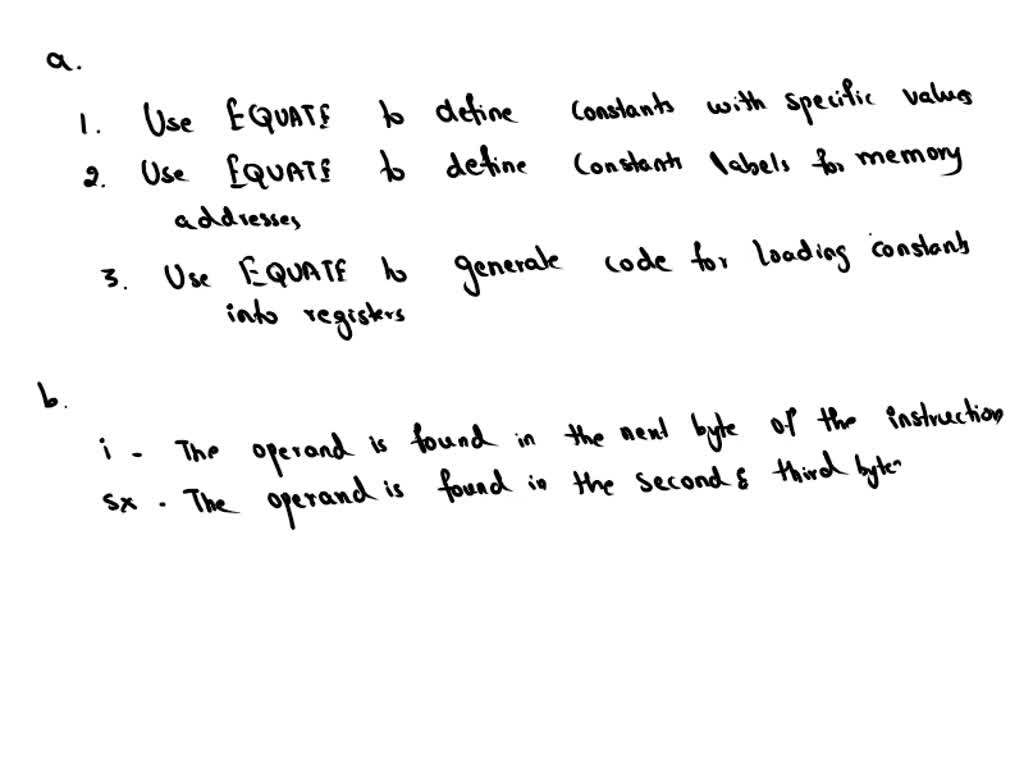 a.
1. Use EQUATE to define constants with specific values
2. Use EQUATE to define constants labels for memory
addresses
3. Use EQUATE to generate code for loading constants
into registers
b.
i - The operand is found in the next byte of the instruction
sx - The operand is found in the second & third byte